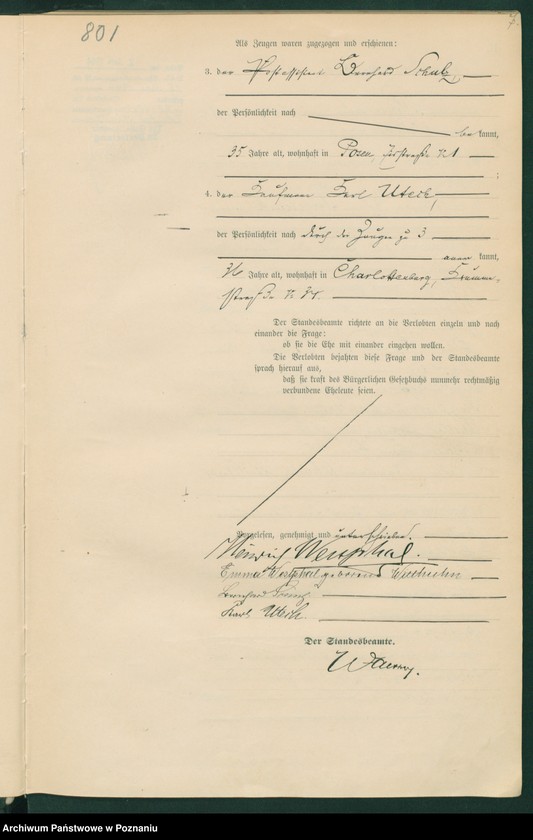 801
Als Zeugen waren zugezogen und erschienen:
3. der Postassistent Bernhard Schulz,
der Persönlichkeit nach
be kannt,
35 Jahre alt, wohnhaft in Posen,
;
4. der Kaufmann Karl Utech,
der Persönlichkeit nach durch den Zeugen zu 3
aner kannt,
36 Jahre alt, wohnhaft in Charlottenburg, Krumme-
straße
Der Standesbeamte richtete an die Verlobten einzeln und nach
einander die Frage:
ob sie die Ehe mit einander eingehen wollen.
Die Verlobten bejahten diese Frage und der Standesbeamte
sprach hierauf aus,
daß sie kraft des Bürgerlichen Gesetzbuchs nunmehr rechtmäßig
verbundene Eheleute seien.
Vorgelesen, genehmigt und unterschrieben.
Heinrich Westphal.
Emma Westphal geborene
Bernhard Schulz
Karl Utech
Der Standesbeamte.
Archiwum Państwowe w Poznaniu